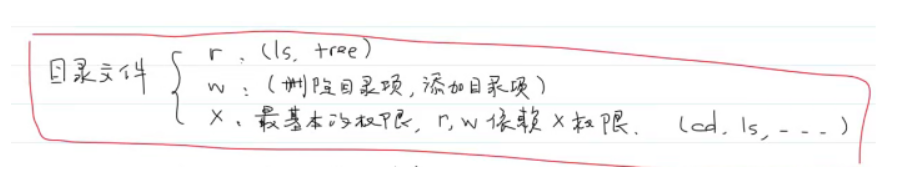 目录文件
r、(ls, tree)
w:(删除目录项,添加目录项)
x、最基本的权限, r,w依赖x权限. (cd, ls, - - - )